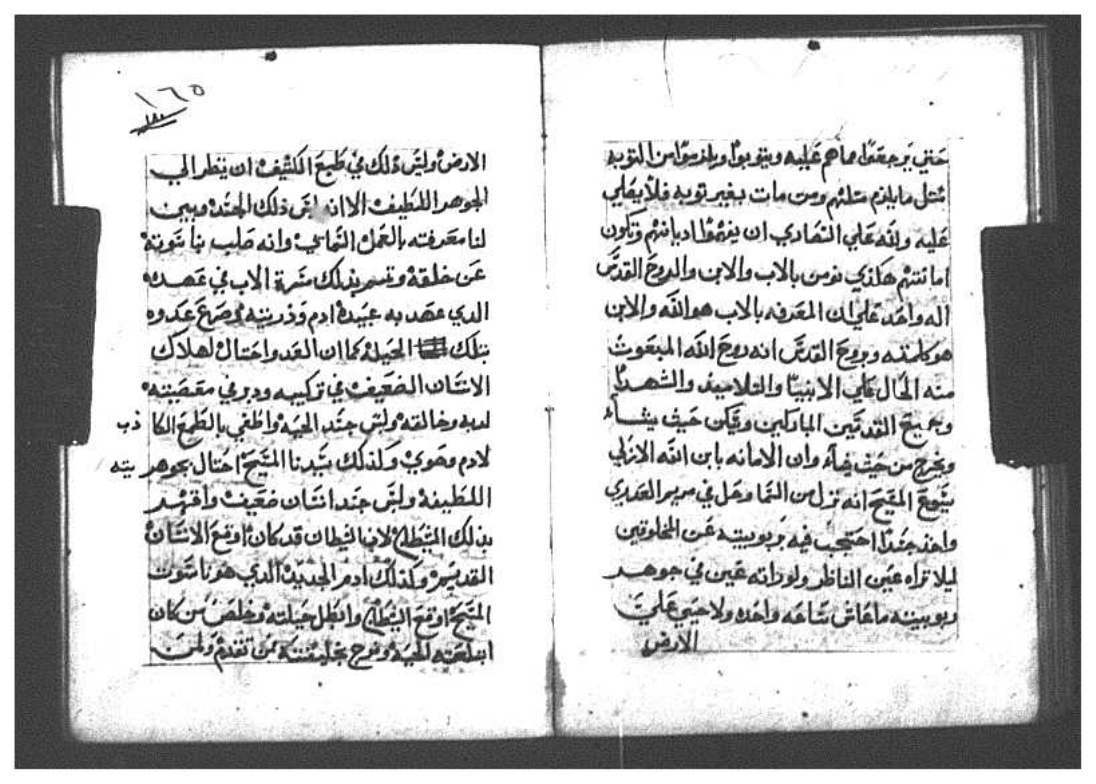 حتي يرجعوا عما هم عليه ويتوبوا ويلزموا من التوبه
مثل ما يلزم مثلهم ومن مات بغير توبه فلا يصلي
عليه ولله علي النصاري ان يفهموا اديانهم وتكون
امانتهم هكذي نومن بالاب والابن والروح القدس
اله واحد علي ان المعرفه بالاب هو الله والابن
هو كلمته وبروح القدس انه روح الله المبعوث
منه الحال علي الانبيا والتلاميد والشهدا
وجميع القديسين المباركين ويسكن حيث يشاء
ويخرج من حيث شاء وان الامانه بابن الله الازلي
يسوع المسيح انه نزل من السما وحل في مريم العدري
واخد جسدا احتجب فيه بربوبيته عن المخلوقين
ليلا تراه عين الناظر ولو راته عين في جوهر
ربوبيته ما عاش ساعه واحده ولا حيي علي
الارض
١٦٥
الارض وليس ذلك في طبع الكثيف ان ينظر الي
الجوهر اللطيف الا انه لبس ذلك الجسد وبين
لنا معرفته بالعمل السماي وانه صلب بناسوته
عن خلقه وتمم بذلك مسرة الاب في عهده
الدي عهد به عبيده ادم وذريته وصرع عدوه
بتلك الحيله كما ان العدو احتال لهلاك
الانسان الضعيف في تركيبه ودبر في معصيته
لربه وخالقه ولبس جسد الحيه واطغي بالطمع الكا ذب
لادم وحوي وكذلك سيدنا المسيح احتال بجوهر يته
اللطيفه ولبس جسد انسان ضعيف وقهر
بذلك الشيطان لان الشيطان قد كان اوقع الانسان
القديم وكذلك ادم الجديد الدي هو ناسوت
المسيح اوقع الشيطان وابطل حيلته وخلص من كان
ابتلعته الحيه من تقدم ولمن